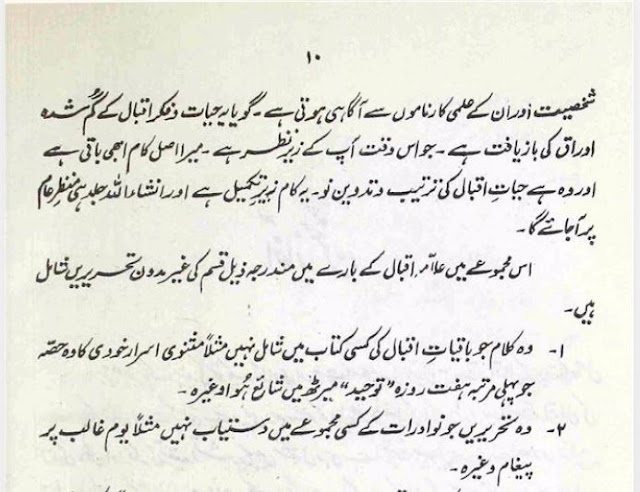 ۱۰
شخصیت اور ان کے علمی کارناموں سے آگاہی ہوتی ہے۔ گویا یہ حیات و فکر اقبال کے گُم شدہ
اوراق کی بازیافت ہے۔ جو اس وقت آپ کے زیرِ نظر ہے۔ میرا اصل کام ابھی باقی ہے
اور وہ ہے حیاتِ اقبال کی ترتیب و تدوینِ نو۔ یہ کام زیرِ تکمیل ہے اور انشاء اللہ جلد ہی منظرِ عام
پر آجائے گا۔
اس مجموعے میں علامہ اقبال کے بارے میں مندرجہ ذیل قسم کی غیر مدون تحریریں شامل
ہیں۔
۱- وہ کلام جو باقیاتِ اقبال کی کسی کتاب میں شامل نہیں مثلاً مثنوی اسرارِ خودی کا وہ حصّہ
جو پہلی مرتبہ ہفت روزہ "توحید" میرٹھ میں شائع ہُوا وغیرہ۔
۲- وہ تحریریں جو نوادرات کے کسی مجموعے میں دستیاب نہیں مثلاً یومِ غالب پر
پیغام وغیرہ۔